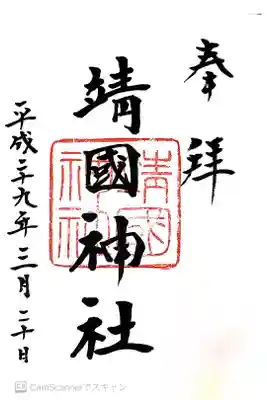 奉拝
靖國神社
平成二十九年三月二十日
靖国神社
CamScannerでスキャン